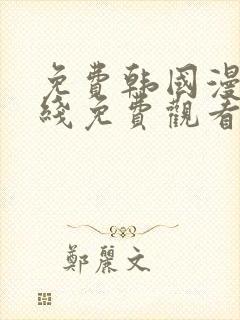 免費韩國漫
綫免費觀看
鄭麗文